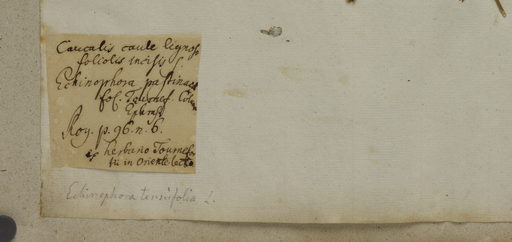 Caucalis caule lignoso
foliolis incisis
Echinophora pastinac
fol. Tournef. Coroll
Ephem
Roy. p. 96. n. 6.
herbario Tournefor
tii in Oriente lecta
Echinophora tenuifolia L.